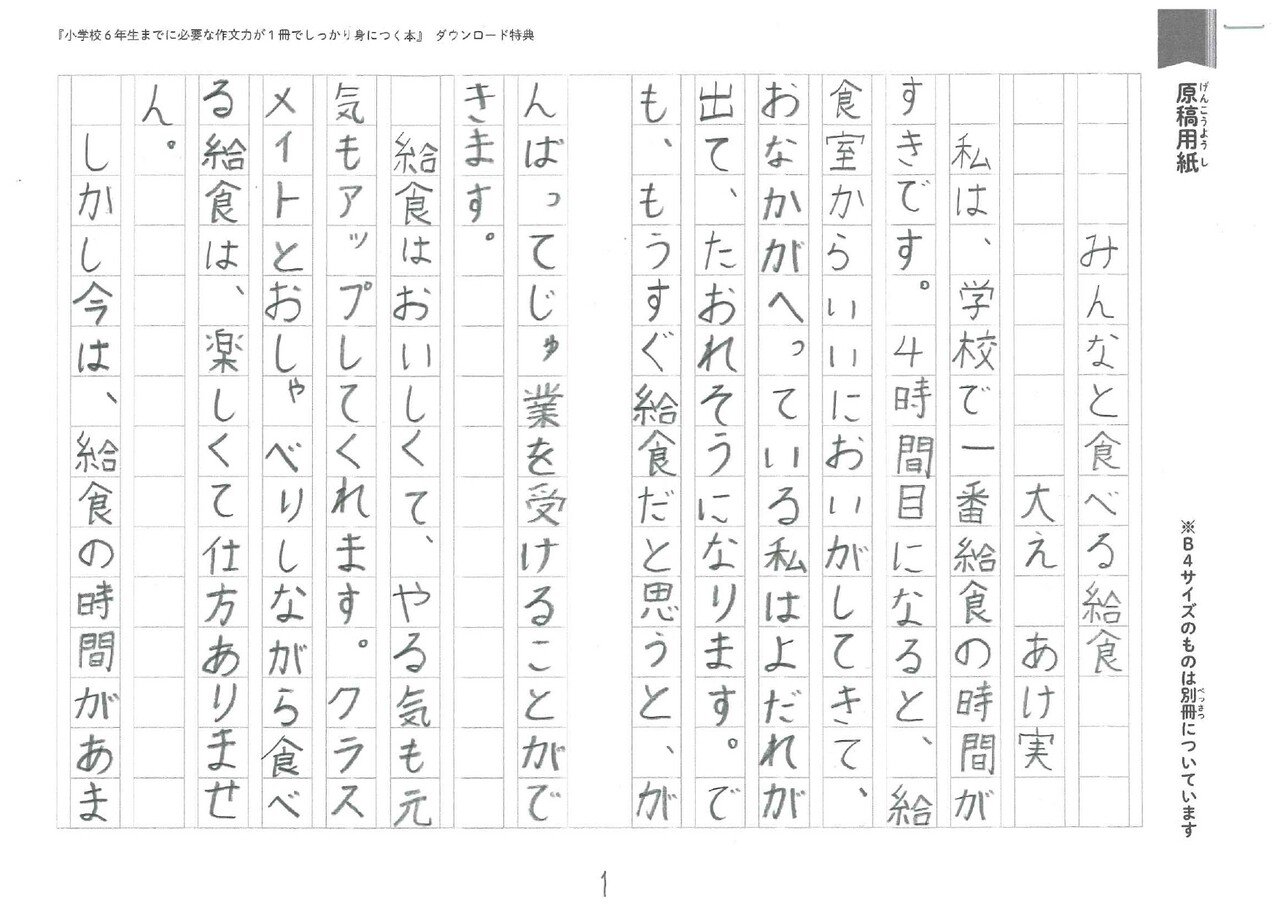 『小学校6年生までに必要な作文力が1冊でしっかり身につく本』 ダウンロード特典
原稿用紙
げんこうようし
※B4サイズのものは別冊についています
べっさつ
みんなと食べる給食
大え あけ実
私は、学校で一番給食の時間が
すきです。4時間目になると、給
食室からいいにおいがしてきて、
おなかがへっている私はよだれが
出て、たおれそうになります。で
も、もうすぐ給食だと思うと、が
んばってじゅ業を受けることがで
きます。
給食はおいしくて、やる気も元
気もアップしてくれます。クラス
メイトとおしゃべりしながら食べ
る給食は、楽しくて仕方ありませ
ん。
しかし今は、給食の時間があま
1